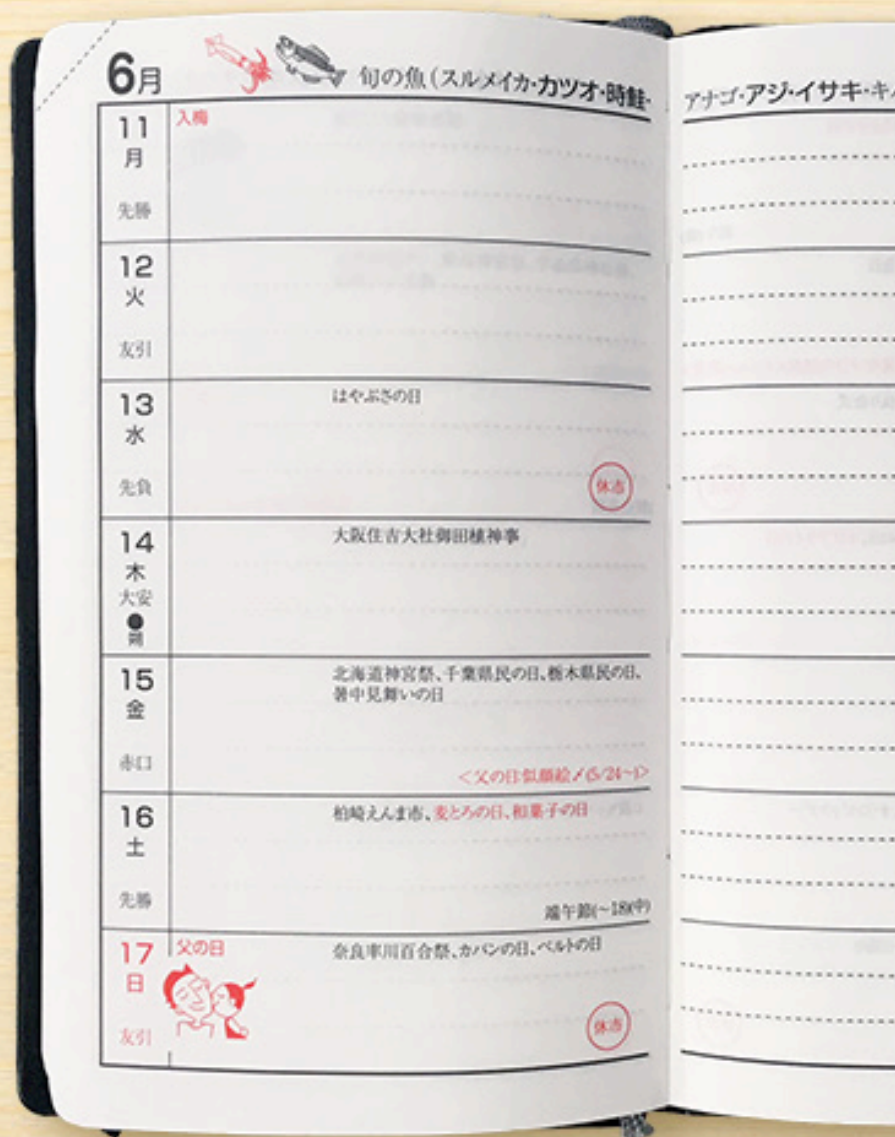 6月
旬の魚(スルメイカ・カツオ・時鮭・
アナゴ・アジ・イサキ・キ
11
月
先勝
入梅
12
火
友引
13
水
先負
はやぶさの日
休市
14
木
大安
●
朔
大阪住吉大社御田植神事
15
金
赤口
北海道神宮祭、千葉県民の日、栃木県民の日、
暑中見舞いの日
<父の日似顔絵〆(5/24~)>
16
土
先勝
柏崎えんま市、麦とろの日、和菓子の日
端午節(~18)(中)
17
日
友引
父の日
奈良率川百合祭、カバンの日、ベルトの日
休市